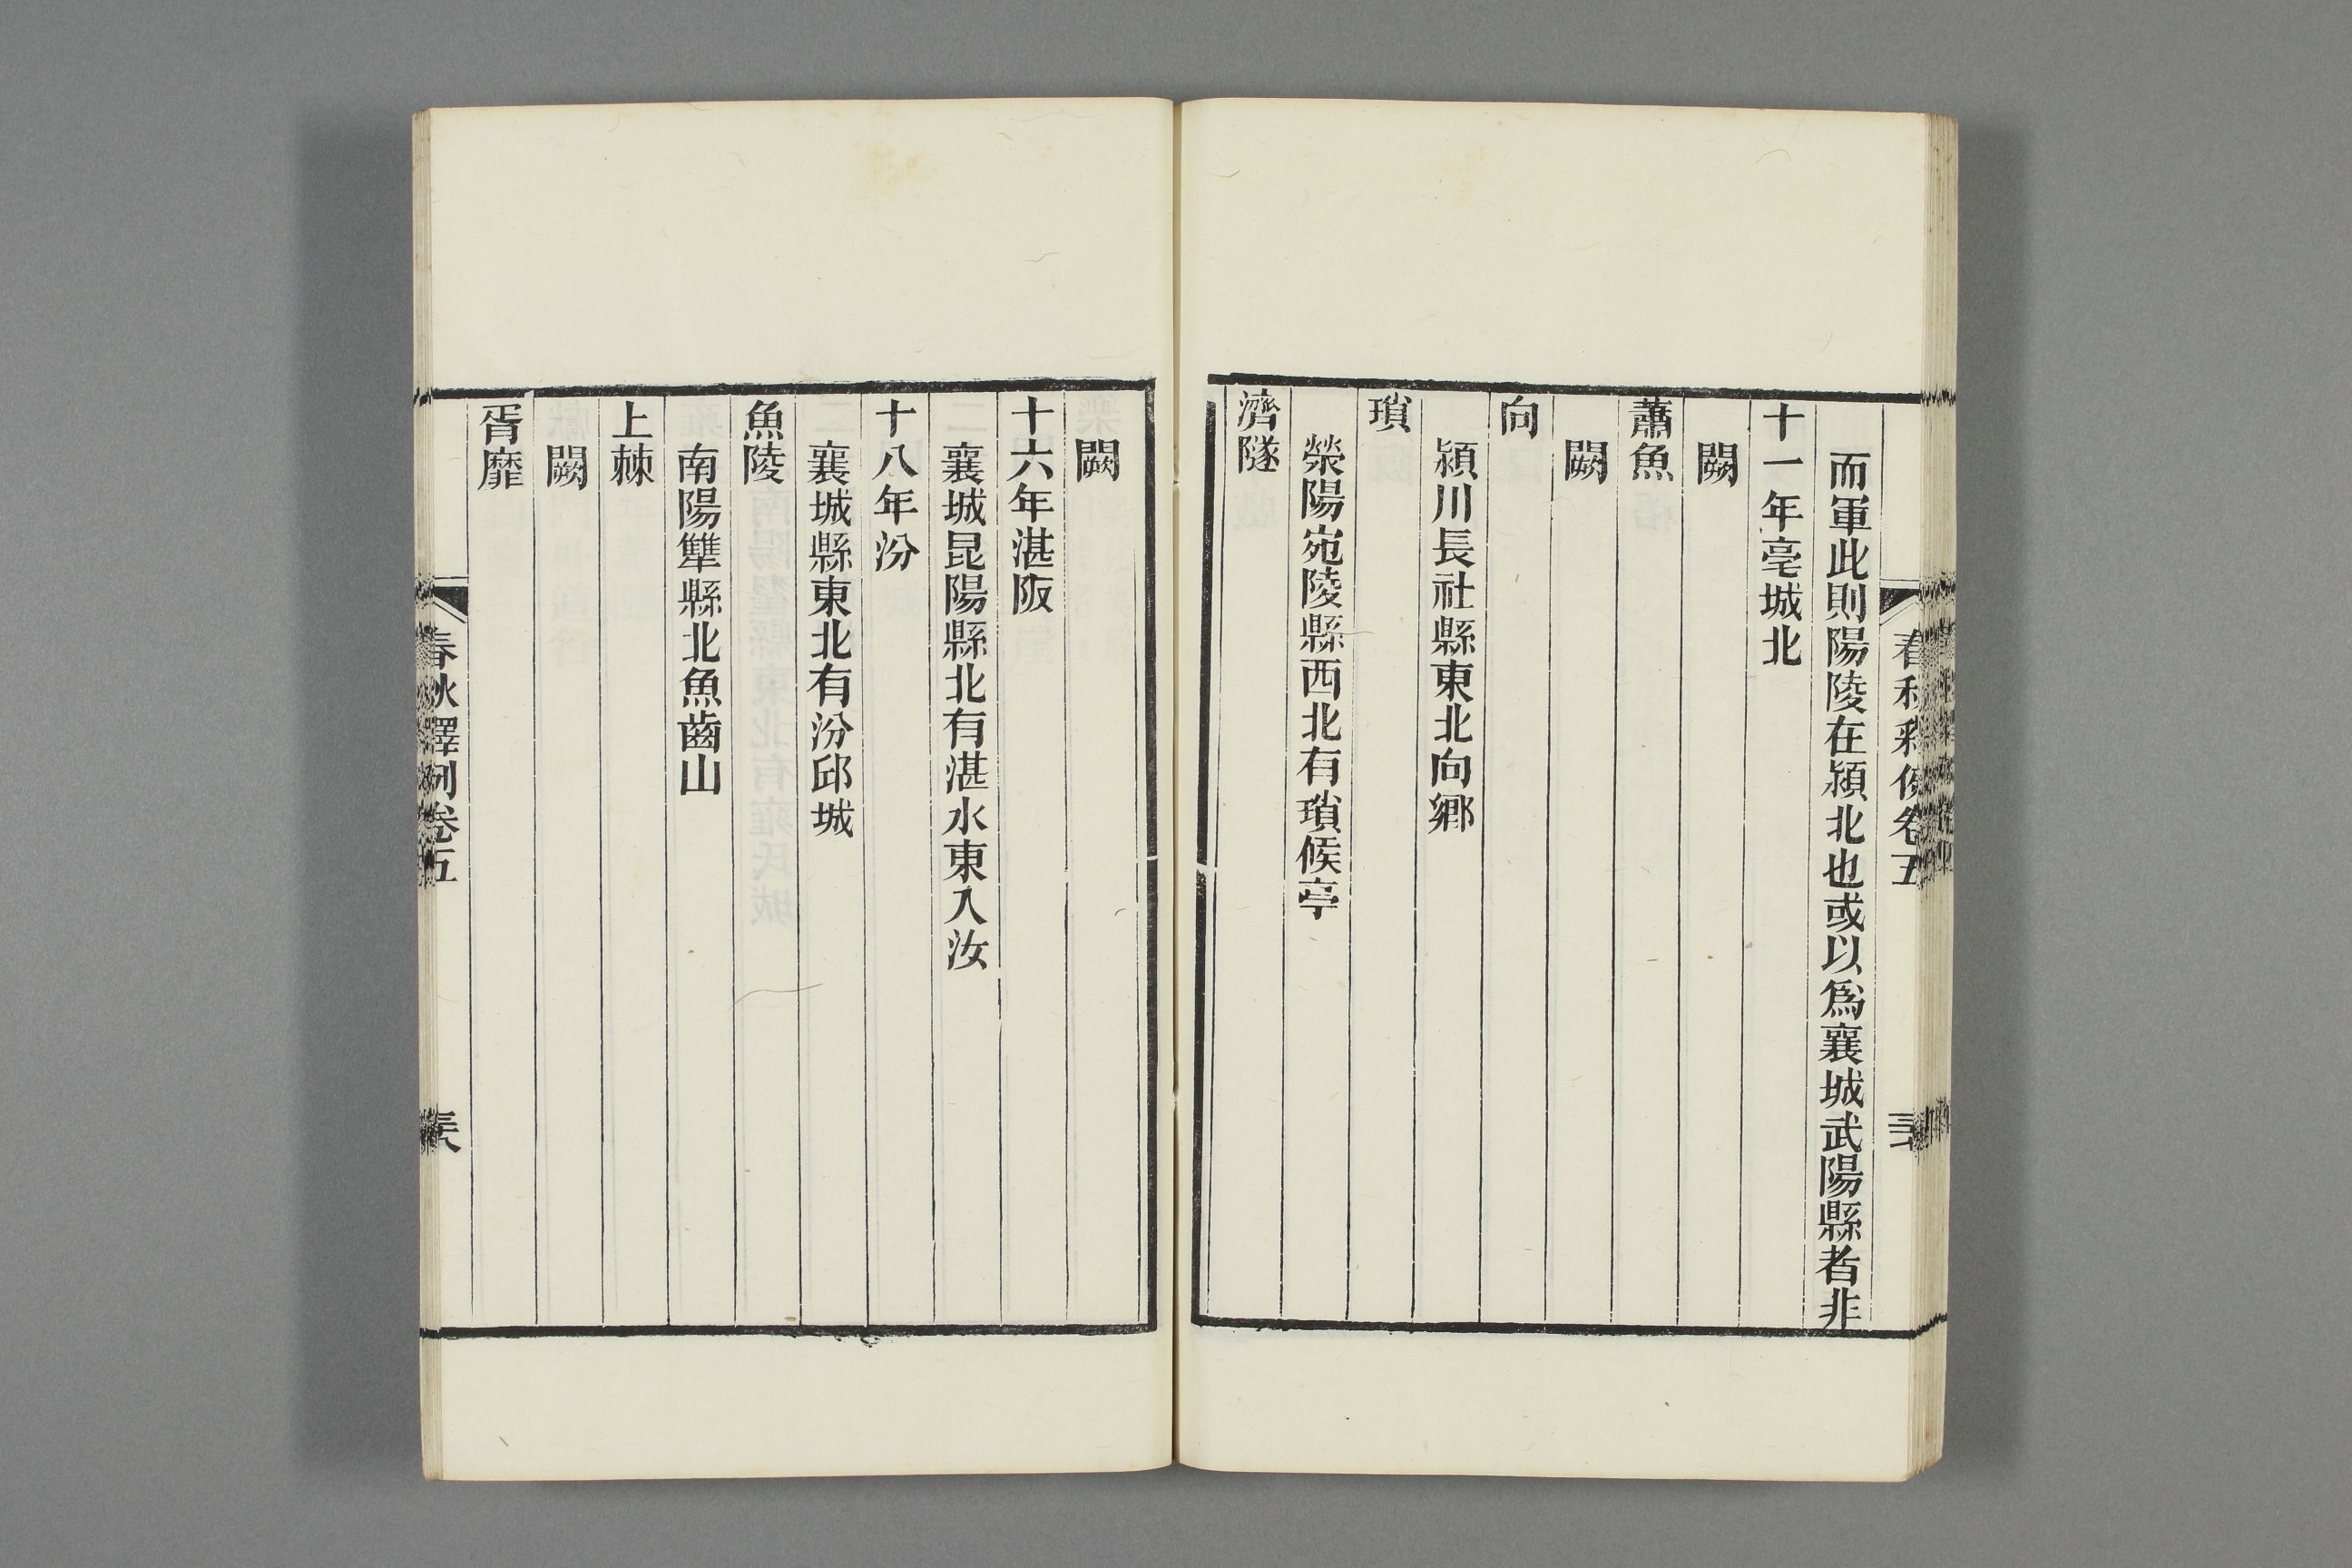 而軍此則陽陵在潁北也或以爲襄城武陽縣者非
十一年亳城北
闕
蕭魚
闕
向
潁川長社縣東北向鄉
瑣
滎陽宛陵縣西北有瑣候亭
濟隧
闕
十六年湛阪
襄城昆陽縣北有湛水東入汝
十八年汾
襄城縣東北有汾邱城
魚陵
南陽犨縣北魚齒山
上棘
闕
胥靡
春秋釋例卷五